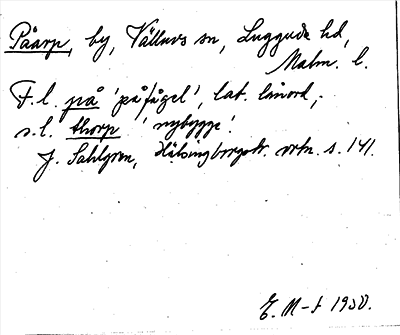 Påarp, by, Välluvs sn, Luggude hd,
Malm. l.
F.l. på 'påfågel', lat. lånord,
s.l. thorp 'nybygge'.
J. Sahlgren, Hälsingborgstr. ortn. s. 141.
E. M-f 1950.